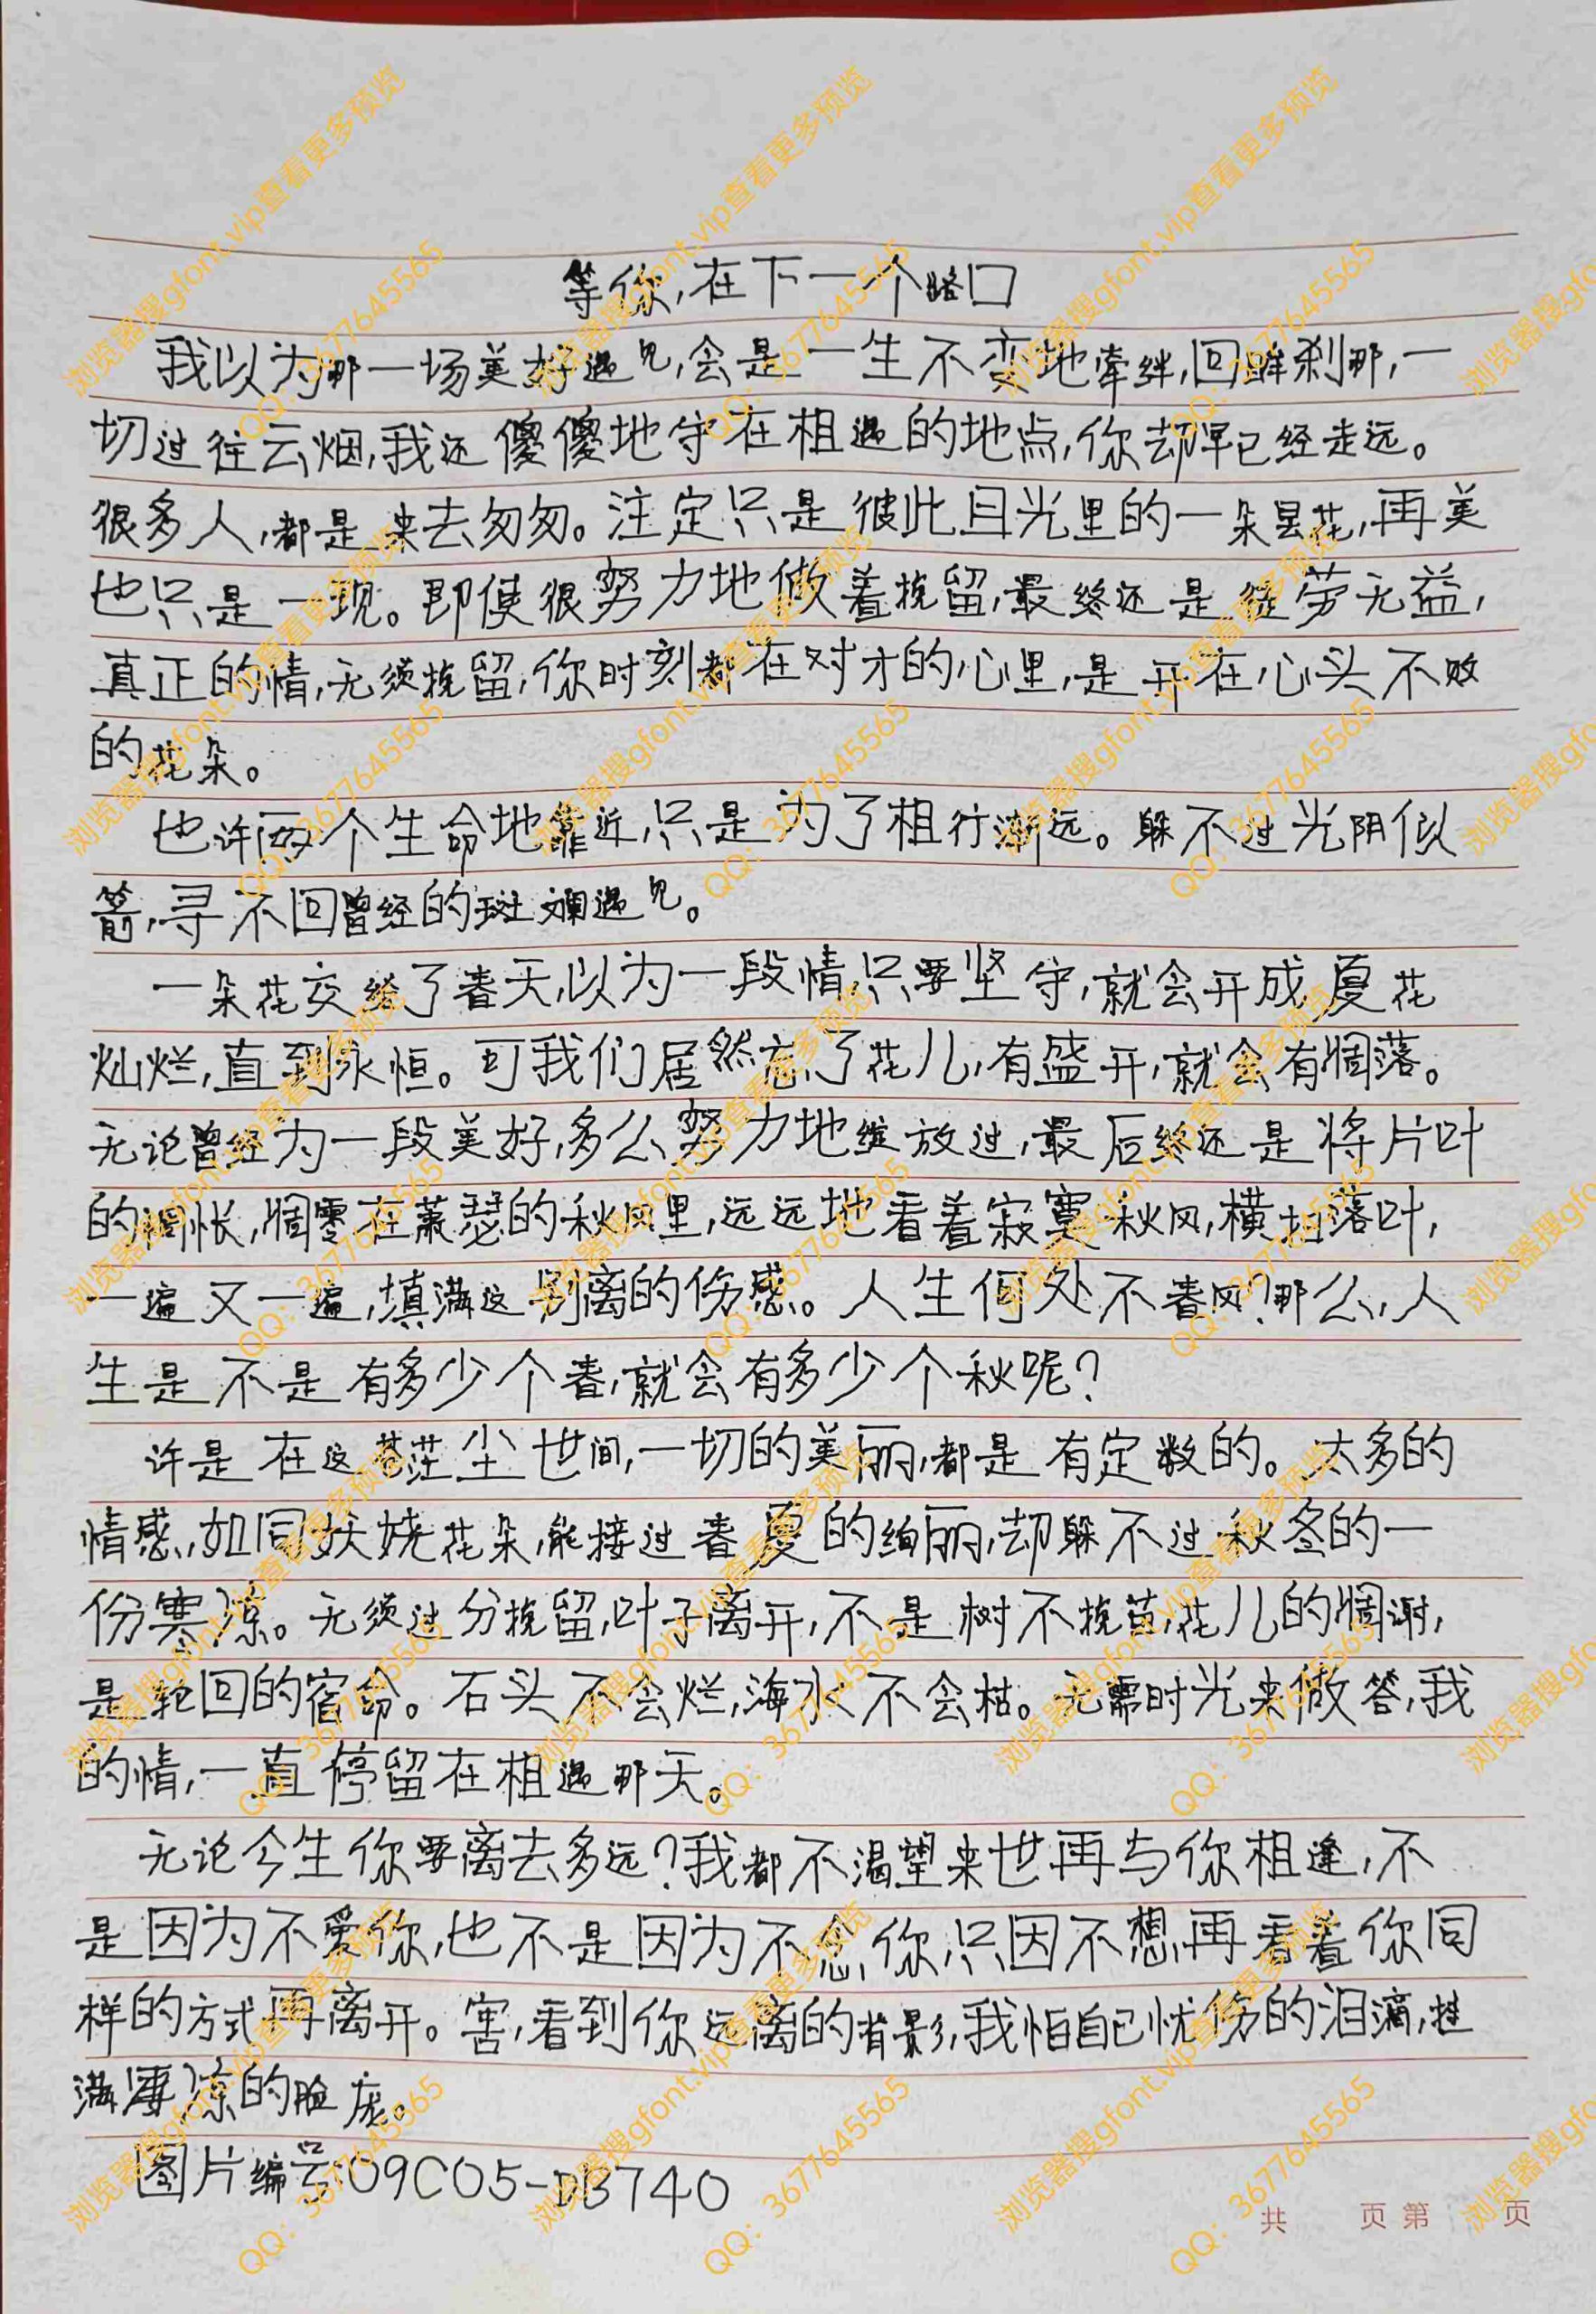 等你,在下一个路口
我以为那一场美好遇见,会是一生不变地牵绊,回眸刹那,一
切过往云烟,我还傻傻地守在相遇的地点,你却早已经走远。
很多人,都是来去匆匆。注定只是彼此目光里的一朵昙花,再美
也只是一现。即使很努力地做着挽留,最终还是徒劳无益,
真正的情,无须挽留,你时刻都在对才的心里,是开在心头不败
的花朵。
也许两个生命地靠近,只是为了相行渐远。躲不过光阴似
箭,寻不回曾经的斑斓遇见。
一朵花交给了春天,以为一段情,只要坚守,就会开成夏花
灿烂,直到永恒。可我们居然忘了花儿,有盛开,就会有凋落。
无论曾经为一段美好,多么努力地绽放过,最后终还是将片叶
的惆怅,凋零在萧瑟的秋风里,远远地看着寂寞秋风,横扫落叶,
一遍又一遍,填满这别离的伤感。人生何处不春风?那么,人
生是不是有多少个春,就会有多少个秋呢?
许是在这苍茫尘世间,一切的美丽,都是有定数的。太多的
情感,如同妖娆花朵,能接过春夏的绚丽,却躲不过秋冬的一
份寒凉。无须过分挽留,叶子离开,不是树不挽苗,花儿的凋谢,
是轮回的宿命。石头不会烂,海水不会枯。无需时光来做答,我
的情,一直停留在相遇那天。
无论今生你要离去多远?我都不渴望来世再与你相逢,不
是因为不爱你,也不是因为不念你,只因不想再看着你同
样的方式再离开。害,看到你远离的背影,我怕自己忧伤的泪滴,挂
满凄凉的脸庞。
图片编号:09C05-DB740
共 页 第 页
浏览器搜gfont.vip查看更多预览
QQ：3677645565